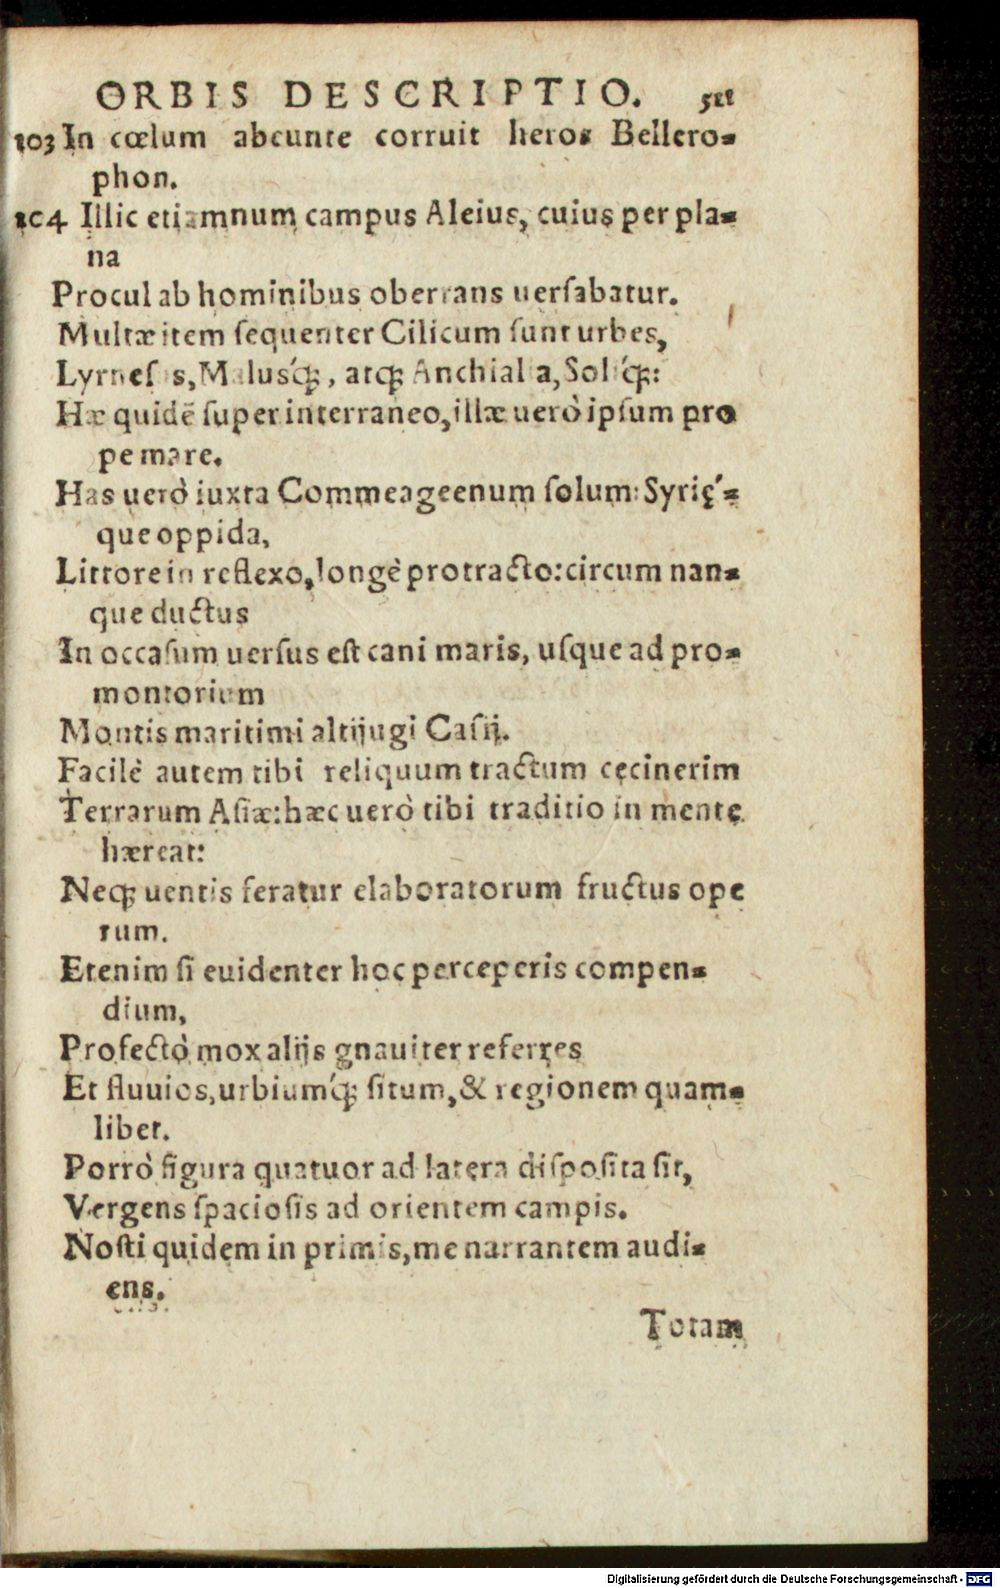 ORBIS DESCRIPTIO. 511
103 In cœlum abeunte corruit heros Bellero-
phon.
104 Illic etiamnum campus Aleius, cuius per pla-
na
Procul ab hominibus oberrans uersabatur.
Multæ item sequenter Cilicum sunt urbes,
Lyrnessus, Malusq́;, atq; Anchialia, Soliq́;:
Hæ quidē super interraneo, illæ uerò ipsum pro
pe mare.
Has uerò iuxta Commeageenum solum: Syrię́-
que oppida,
Littore in reflexo, longè protracto: circum nan-
que ductus
In occasum uersus est cani maris, usque ad pro-
montorium
Montis maritimi altijugi Casij.
Facilè autem tibi reliquum tractum cecinerim
Terrarum Asiæ: hæc uerò tibi traditio in mente
hæreat:
Neq; uentis feratur elaboratorum fructus ope
rum.
Etenim si euidenter hoc perceperis compen-
dium,
Profectò mox alijs gnauiter referres
Et fluuios, urbiumq́; situm, & regionem quam-
libet.
Porrò figura quatuor ad latera disposita sit,
Vergens spaciosis ad orientem campis.
Nosti quidem in primis, me narrantem audi-
ens.
Totam
Digitalisierung gefördert durch die Deutsche Forschungsgemeinschaft - DFG